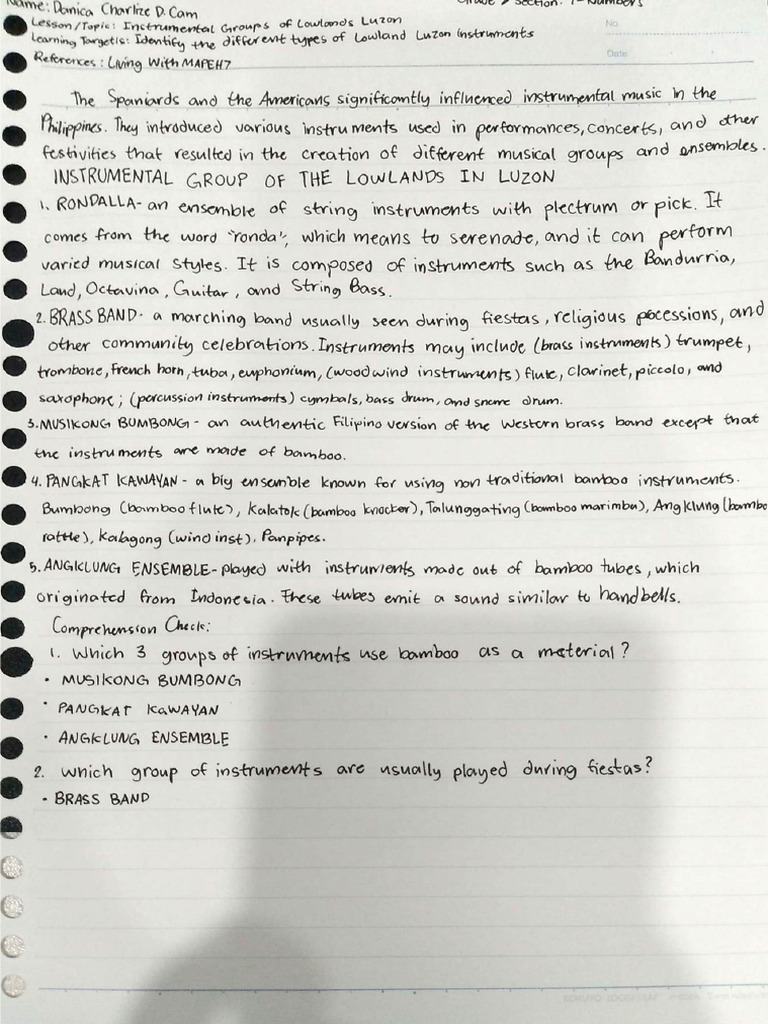 Name: Danica Charlize D. Cam
Grade & Section: 7-Numbers
Lesson/Topic: Instrumental Groups of Lowlands Luzon
No.
Learning Targets: Identify the different types of Lowland Luzon Instruments
Date
References: Living With MAPEH7
The Spaniards and the Americans significantly influenced instrumental music in the
Philippines. They introduced various instruments used in performances, concerts, and other
festivities that resulted in the creation of different musical groups and ensembles.
INSTRUMENTAL GROUP OF THE LOWLANDS IN LUZON
1. RONDALLA- an ensemble of string instruments with plectrum or pick. It
comes from the word "ronda", which means to serenade, and it can perform
varied musical styles. It is composed of instruments such as the Bandurria,
Laud, Octavina, Guitar, and String Bass.
2. BRASS BAND- a marching band usually seen during fiestas, religious pocessions, and
other community celebrations. Instruments may include (brass instruments) trumpet,
trombone, french horn, tuba, euphonium, (woodwind instruments) flute, clarinet, piccolo, and
saxophone; (percussion instruments) cymbals, bass drum, and snare drum.
3. MUSIKONG BUMBONG - an authentic Filipino version of the Western brass band except that
the instruments are made of bamboo.
4. PANGKAT KAWAYAN - a big ensemble known for using non traditional bamboo instruments.
Bumbong (bamboo flute), Kalatok (bamboo knocker), Talunggating (bamboo marimba), Angklung (bamboo
rattle), Kalagong (wind inst), Panpipes.
5. ANGKLUNG ENSEMBLE- played with instruments made out of bamboo tubes, which
originated from Indonesia. These tubes emit a sound similar to handbells.
Comprehension Check:
1. Which 3 groups of instruments use bamboo as a material?
• MUSIKONG BUMBONG
• PANGKAT KAWAYAN
• ANGKLUNG ENSEMBLE
2. Which group of instruments are usually played during fiestas?
• BRASS BAND